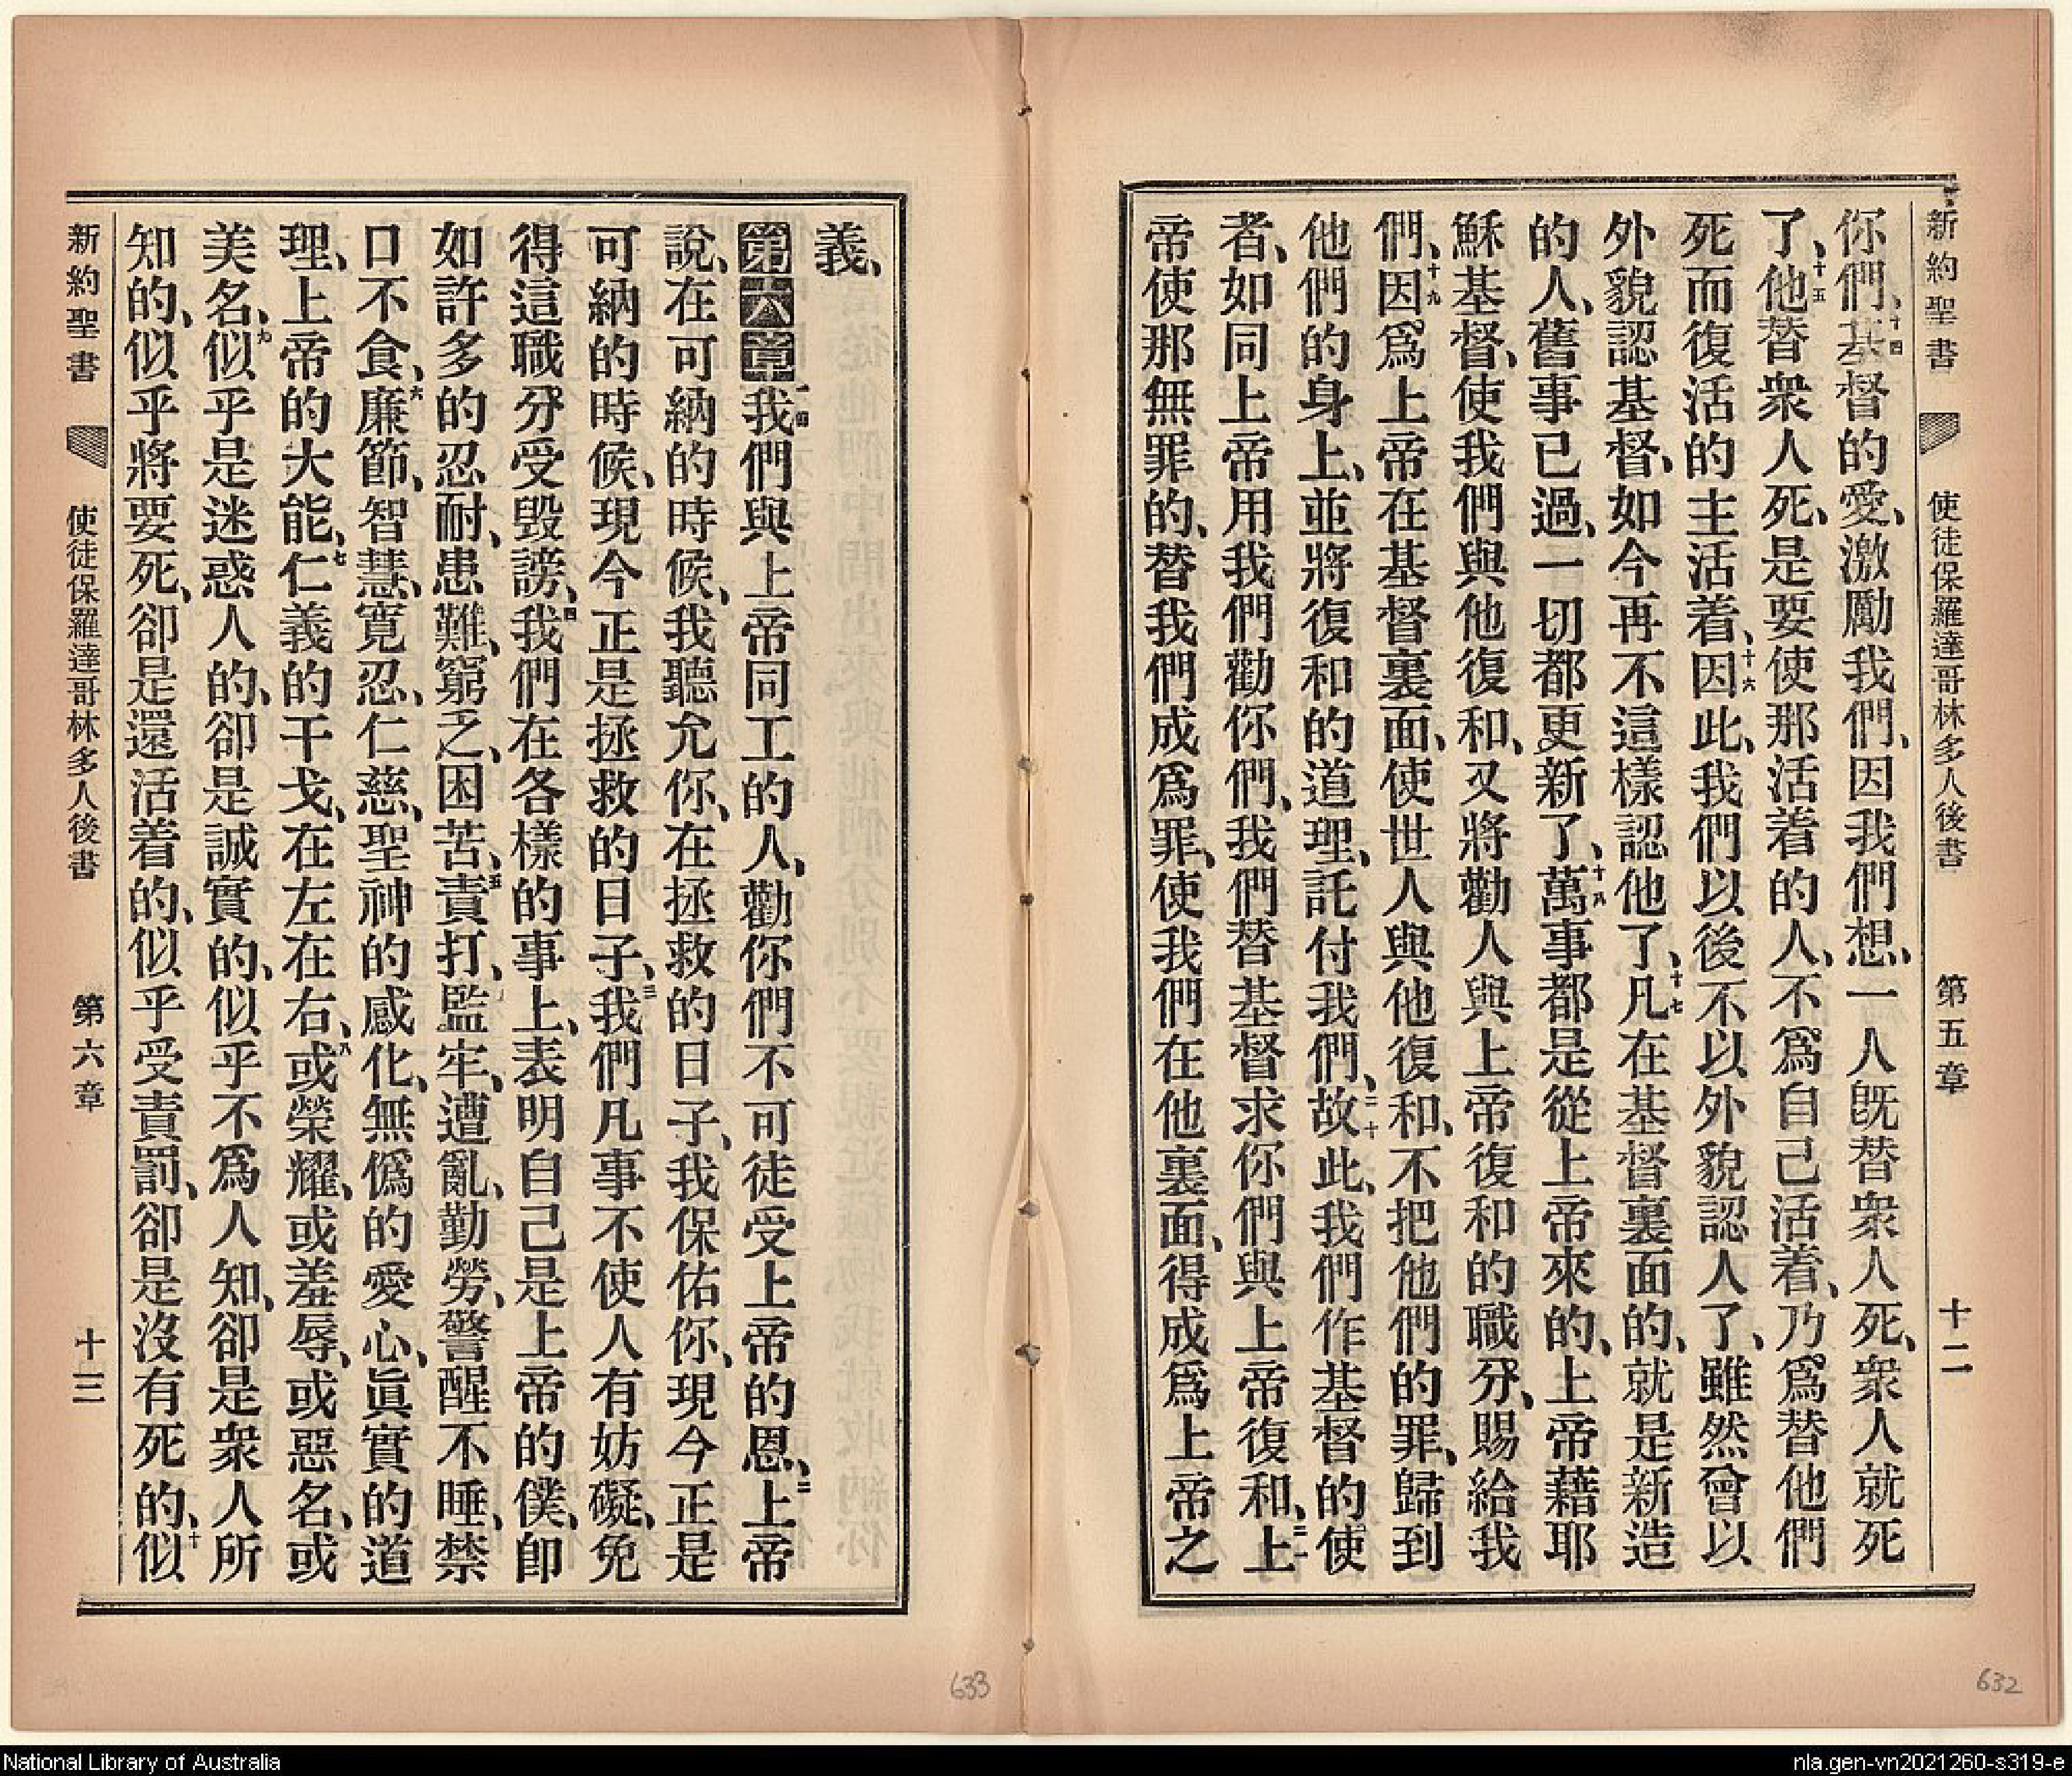 新約聖書 使徒保羅達哥林多人後書 第五章 十二
你們、十四基督的愛、激勵我們、因我們想、一人既替衆人死、衆人就死
了、十五他替衆人死、是要使那活着的人、不爲自己活着、乃爲替他們
死而復活的主活着、十六因此、我們以後不以外貌認人了、雖然曾以
外貌認基督、如今再不這樣認他了、十七凡在基督裏面的、就是新造
的人、舊事已過、一切都更新了、十八萬事都是從上帝來的、上帝藉耶
穌基督、使我們與他復和、又將勸人與上帝復和的職分、賜給我
們、十九因爲上帝在基督裏面、使世人與他復和、不把他們的罪、歸到
他們的身上、並將復和的道理、託付我們、二十故此、我們作基督的使
者、如同上帝用我們勸你們、我們替基督求你們與上帝復和、二一上
帝使那無罪的、替我們成爲罪、使我們在他裏面、得成爲上帝之
義、
第六章一我們與上帝同工的人、勸你們不可徒受上帝的恩、二上帝
說、在可納的時候、我聽允你、在拯救的日子、我保佑你、現今正是
可納的時候、現今正是拯救的日子、三我們凡事不使人有妨礙、免
得這職分受毀謗、四我們在各樣的事上、表明自己是上帝的僕、卽
如許多的忍耐、患難、窮乏、困苦、五責打、監牢、遭亂、勤勞、警醒不睡、禁
口不食、六廉節、智慧、寬忍、仁慈、聖神的感化、無僞的愛心、七眞實的道
理、上帝的大能、仁義的干戈、在左在右、八或榮耀、或羞辱、或惡名、或
美名、九似乎是迷惑人的、卻是誠實的、似乎不爲人知、卻是衆人所
知的、似乎將要死、卻是還活着的、似乎受責罰、卻是沒有死的、十似
新約聖書 使徒保羅達哥林多人後書 第六章 十三
633
632
National Library of Australia
nla.gen-vn2021260-s319-e